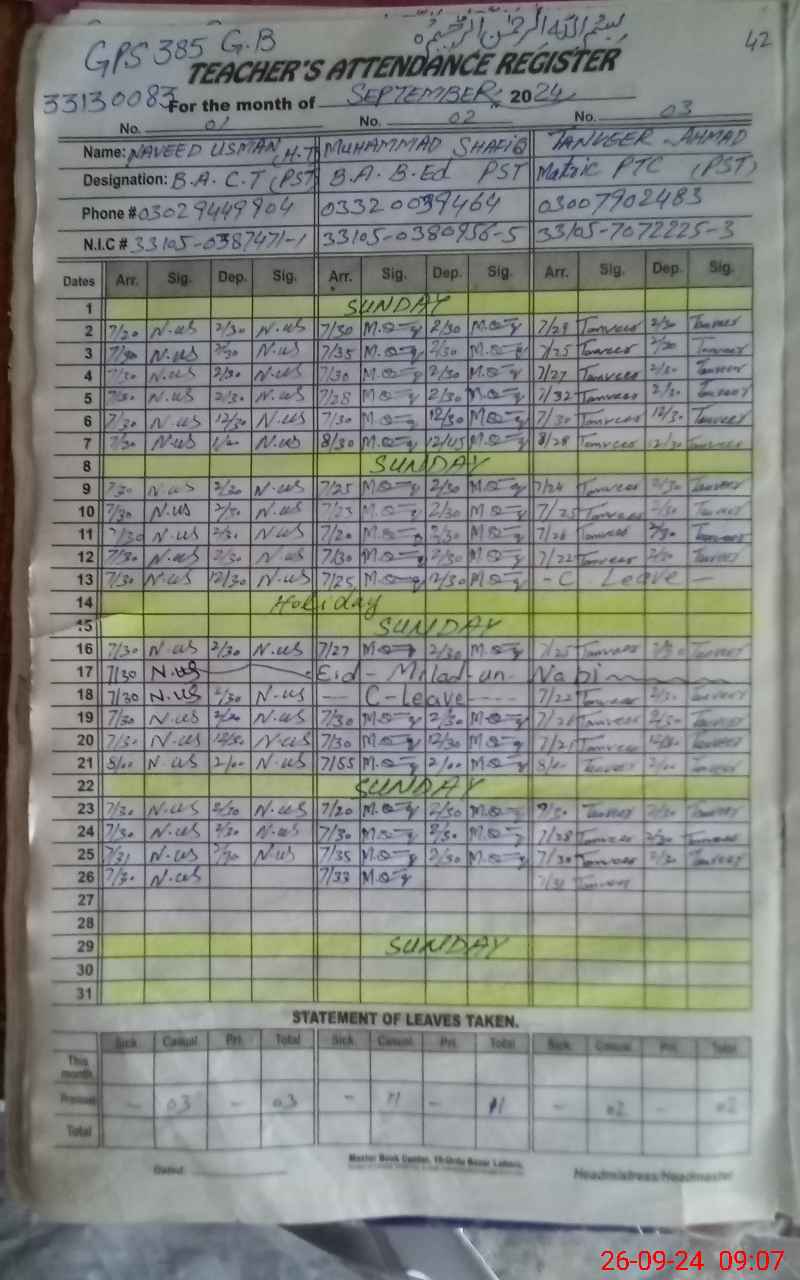 بِسْمِ اللهِ الرَّحْمٰنِ الرَّحِيْمِ
42
GPS 385 G.B
TEACHER'S ATTENDANCE REGISTER
33130083 For the month of SEPTEMBER, 2024
No. 01 No. 02 No. 03
Name: NAVEED USMAN (H.T) MUHAMMAD SHAFIQ TANVEER AHMAD
Designation: B.A. C.T (PST) B.A. B.Ed PST Matric PTC (PST)
Phone # 03029449904 03320039464 03007902483
N.I.C # 33105-0387471-1 33105-0380956-5 33105-7072225-3
Dates Arr. Sig. Dep. Sig. Arr. Sig. Dep. Sig. Arr. Sig. Dep. Sig.
1 SUNDAY
2 7/20 N.us 2/30 N.us 7/30 2/30 7/29 Tanveer 2/30 Tanveer
3 N.us N.us 7/35 2/30 7/25 Tanveer Tanveer
4 7/30 N.us 2/30 N.us 7/30 2/30 7/27 Tanveer 2/30 Tanveer
5 N.us 2/30 N.us 7/28 2/30 7/32 Tanveer 2/30 Tanveer
6 7/30 N.us 12/30 N.us 7/30 12/30 7/30 Tanveer 12/30 Tanveer
7 N.us N.us 8/30 12/15 8/28 Tanveer 12/30 Tanveer
8 SUNDAY
9 7/30 N.us N.us 7/25 2/30 7/24 Tanveer 2/30 Tanveer
10 7/30 N.us 2/30 N.us 2/30 7/25 Tanveer 2/30 Tanveer
11 7/30 N.us 2/30 N.us 7/20 2/30 Tanveer 2/30 Tanveer
12 7/30 N.us 2/30 N.us 7/30 2/30 7/22 Tanveer Tanveer
13 7/30 N.us 12/30 N.us 7/25 2/30 - C Leave -
14 Holiday
15 SUNDAY
16 7/30 N.us 2/30 N.us 7/27 2/30 7/25 Tanveer 2/30 Tanveer
17 7/30 N.us Eid - Milad-un-Nabi
18 7/30 N.us 2/30 N.us C-Leave 7/22 Tanveer 2/30 Tanveer
19 7/30 N.us N.us 7/30 2/30 Tanveer 2/30 Tanveer
20 7/30 N.us 12/30 N.us 7/30 12/30 Tanveer Tanveer
21 8/00 N.us 2/00 N.us 7/55 2/00 8/00 Tanveer 2/00 Tanveer
22 SUNDAY
23 7/30 N.us 2/30 N.us 7/20 2/30 Tanveer 2/30 Tanveer
24 7/30 N.us 2/30 N.us 7/30 2/30 7/28 Tanveer 2/30 Tanveer
25 7/31 N.us N.us 7/35 2/30 7/30 Tanveer 2/30 Tanveer
26 7/30 N.us 7/33 Tanveer
27
28
29 SUNDAY
30
31
STATEMENT OF LEAVES TAKEN.
Sick Casual Pri. Total Sick Casual Pri. Total Sick Casual Pri. Total
This month
- 03 - 03 - 11 - 11 - 02 - 02
Total
Dated Master Book Center, Urdu Bazar Lahore. Headmistress/Headmaster
26-09-24 09:07